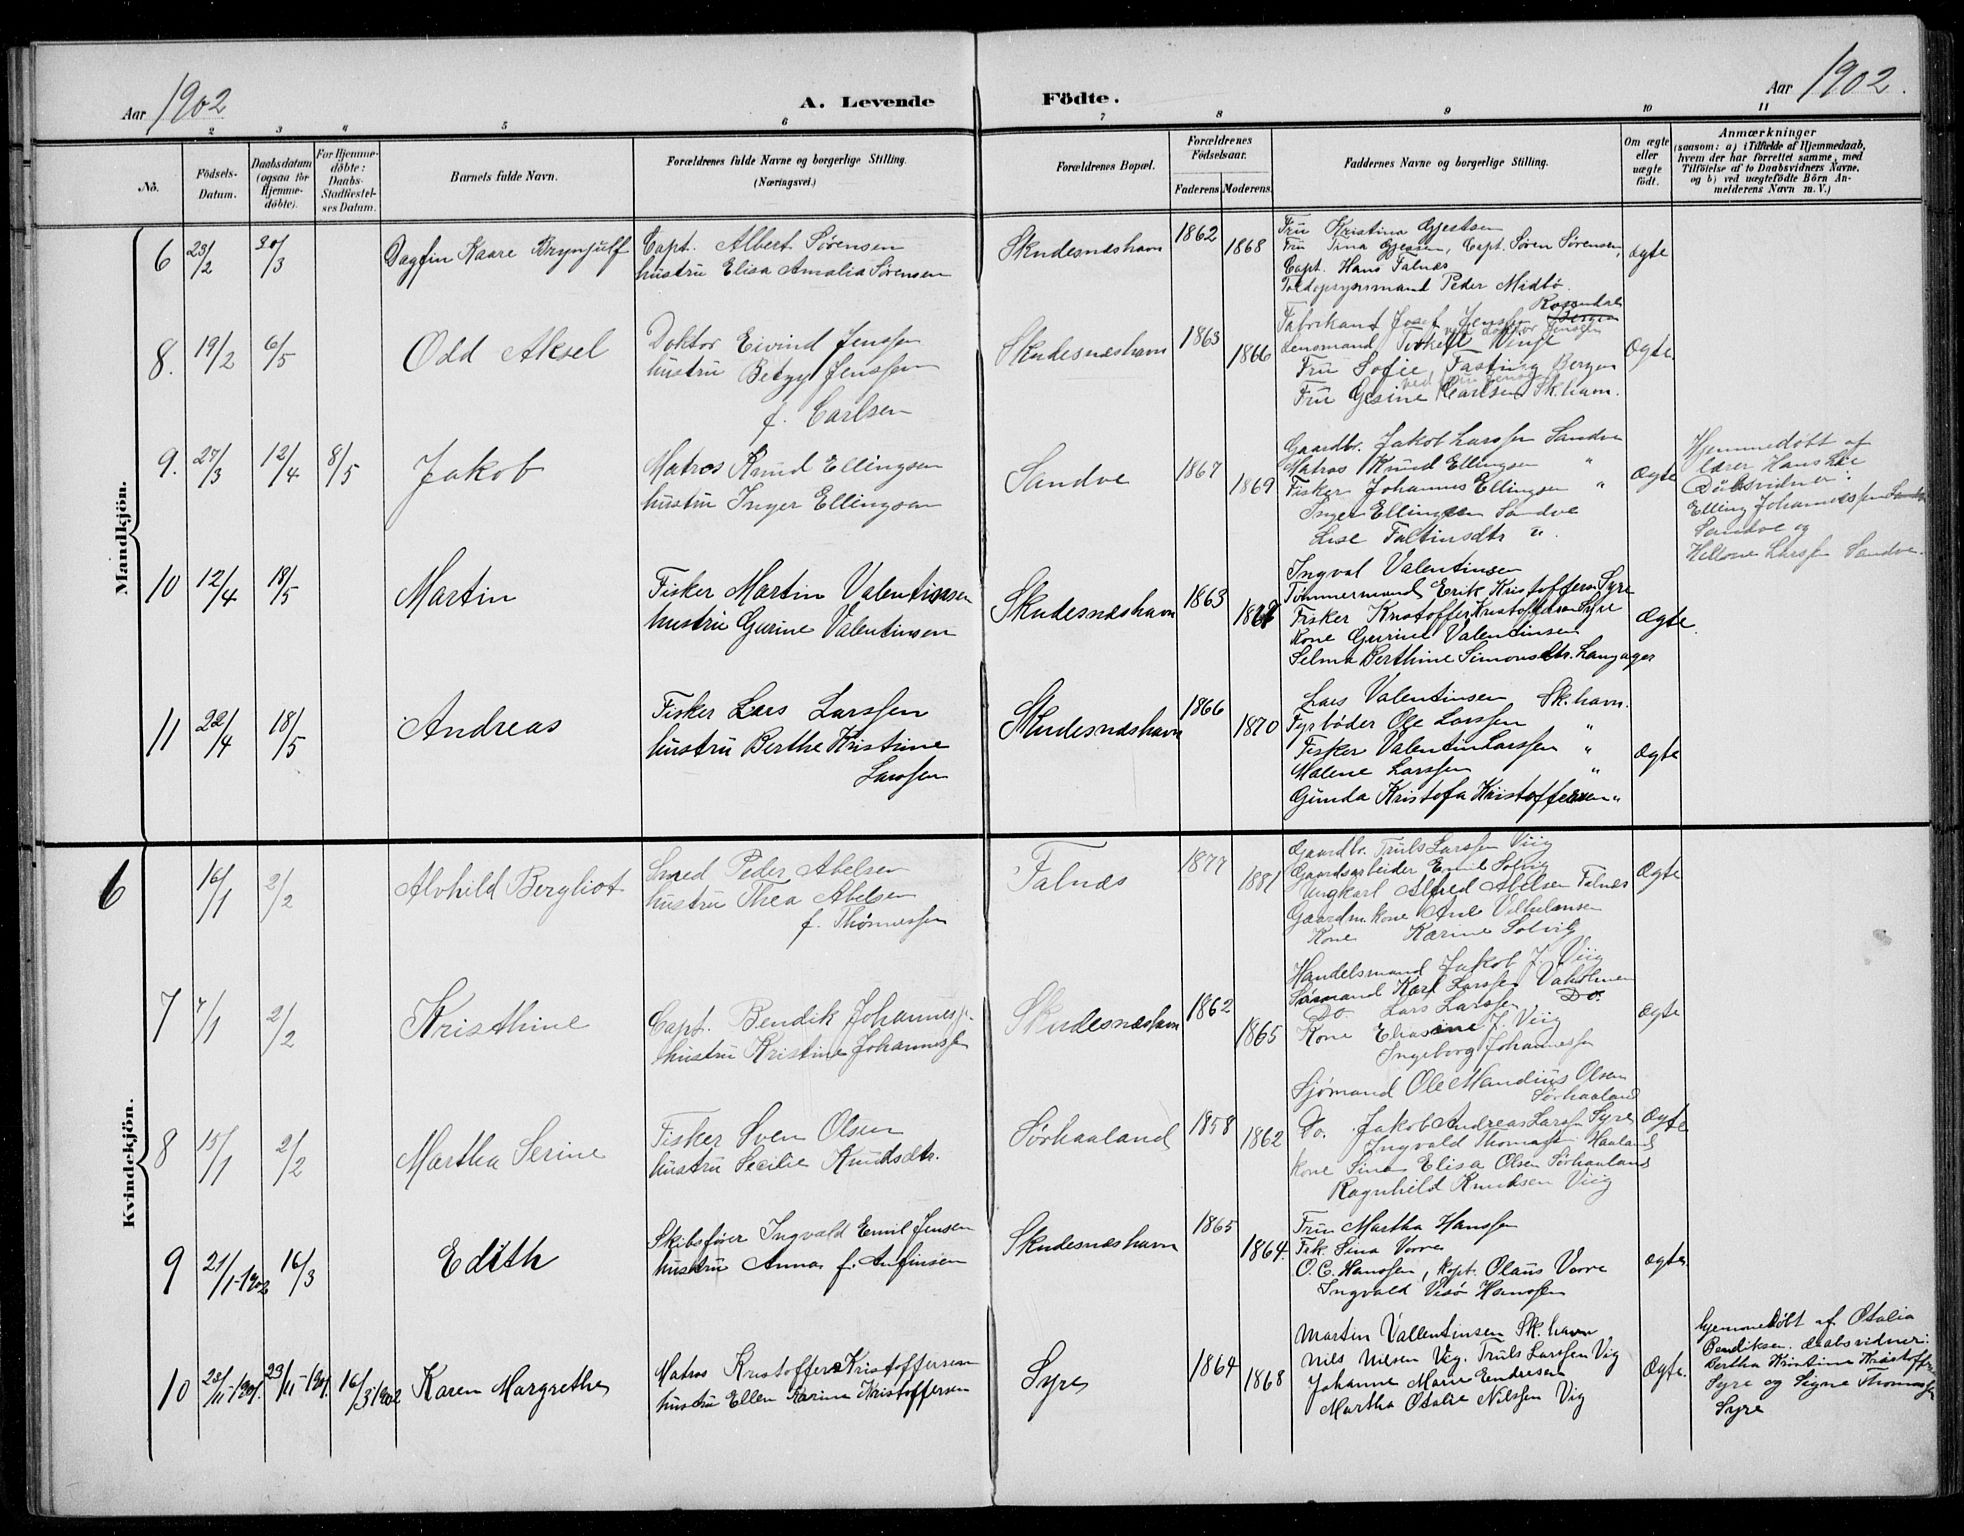 Aar 1902 A. Levende Födte. Aar 1902.
2 3 4 5 6 7 8 9 10 11
No.
Födsels-Datum.
Daabsdatum (ogsaa for Hjemme-döbte).
For Hjemme-döbte: Daabs-Stadfæstel-ses Datum.
Barnets fulde Navn.
Forældrenes fulde Navne og borgerlige Stilling.
(Næringsvei.)
Forældrenes Bopæl.
Forældrenes Födselsaar.
Faderens. Moderens.
Faddernes Navne og borgerlige Stilling.
Om ægte eller uægte födt.
Anmærkninger
(saasom: a) i Tilfælde af Hjemmedaab,
hvem der har forrettet samme, med
Tilföielse af to Daabsvidners Navne,
og b) ved uægtefödte Börn An-
melderens Navn m. V.)
Mandkjön.
6 23/2 30/3 Dagfin Kaare Brynjulf
Capt. Albert Sørensen
hustru Elisa Amalia Sørensen
Skudesnæshavn 1862 1868
Fru Kristina Gjestsen
Fru Tina Gjessen, Capt. Søren Sørensen,
Capt. Hans Falnæs
Toldopsynsmand Peder Midbø.
ægte
8. 19/2 6/5 Odd Aksel
Doktor Eivind Jenssen
hustru Betzy Jenssen
f. Carlsen
Skudesnæshavn 1863 1866
Rosendal
Fabrikant Josef Jenssen Bergen
ved Doktor Jensen
Lensmand Torkell Vinje
Fru Sofie Fasting Bergen
ved Fru Jenssen
Fru Gesine Carlsen Sk.havn.
Ægte
9. 27/3 12/4 8/5 Jakob
Matros Knud Ellingsen
hustru Inger Ellingsen
Sandve 1867 1869
Gaardbr. Jakob Larssen Sandve
Matros Knud Ellingsen "
Fisker Johannes Ellingsen "
Inger Ellingsen Sandve
Lise Faltinsdtr ".
Ægte
Hjemmedøbt af
lærer Hans Lie
Daabsvidner:
Elling Johannessen Sandve
Sandve og
Hellene Larssen Sandve.
10 12/4 18/5 Martin
Fisker Martin Valentinsen
hustru Gurine Valentinsen
Skudesnæshavn 1863
Ingval Valentinsen
Tømmermand Erik Kristoffersen Syre
Fisker Kristoffer Kristoffersen Syre
Kone Gurine Valentinsen
Selma Berthine Simonsdtr. Langager
Ægte.
11 22/4 18/5 Andreas
Fisker Lars Larssen
hustru Berthe Kristine
Larssen
Skudesnæshavn 1866 1870
Lars Valentinsen Sk.havn.
Fyrbøder Ole Larssen "
Fisker Valentin Larssen "
Malene Larssen "
Gunda Kristofa Kristoffersen "
Ægte
Kvindekjön.
6 16/1 2/2 Alvhild Bergliot
Smed Peder Abelsen
hustru Thea Abelsen
f. Thønnessen
Falnæs 1877 1881
Gaardbr. Truls Larssen Viig
Gaardsarbeider Emil Solvig
Ungkarl Alfred Abelsen Falnæs
Gaardm. kone Ane Vilhelmsen
Kone Karine Solvig
Ægte
7 7/1 2/2 Kristhine
Capt. Bendik Johannessen
hustru Kristine Johannessen
Skudesnæshavn 1862 1865
Handelsmand Jakob J. Viig
Sømand Karl Larssen Vaholmen
Do. Lars Larssen, Do.
Kone Eliasine J. Viig
Ingeborg Johannessen
Ægte
8 15/1 2/2 Martha Serine
Fisker Sven Olsen
hustru Secilie Knudsdtr.
Sørhaaland 1858 1862
Sjømand Ole Mandius Olsen
Sørhaaland
Do. Jakob Andreas Larssen Syre
Ingvald Thomassen Haaland
Kone Sina Elisa Olsen Sørhaaland
Ragnhild Knudsen Viig
Ægte
9 21/1-1902 16/3 Edith
Skibsfører Ingvald Emil Jensen
hustru Anna f. Anfinsen
Skudesnæshavn 1865 1864.
Fru Martha Hanssen
Frk. Sina Vorre
O. C. Hanssen, Kapt. Olaus Vorre
Ingvald Visø Hanssen
Ægte
10 23/11-1901. 29/11-1901. 16/3 1902 Karen Margrethe
Matros Kristoffer Kristoffersen
hustru Ellen Karine Kristoffersen
Syre 1864 1868
Martin Vallentinsen Sk.havn
Nils Nilsen Vig. Truls Larssen Vig
Johanne Marie Endresen
Martha Otalie Nilssen Vig
Ægte.
hjemmedøbt af Otalia
Bendiksen. daabsvidner:
Bertha Kristine Kristoffersen
Syre og Signe Thomassen
Syre